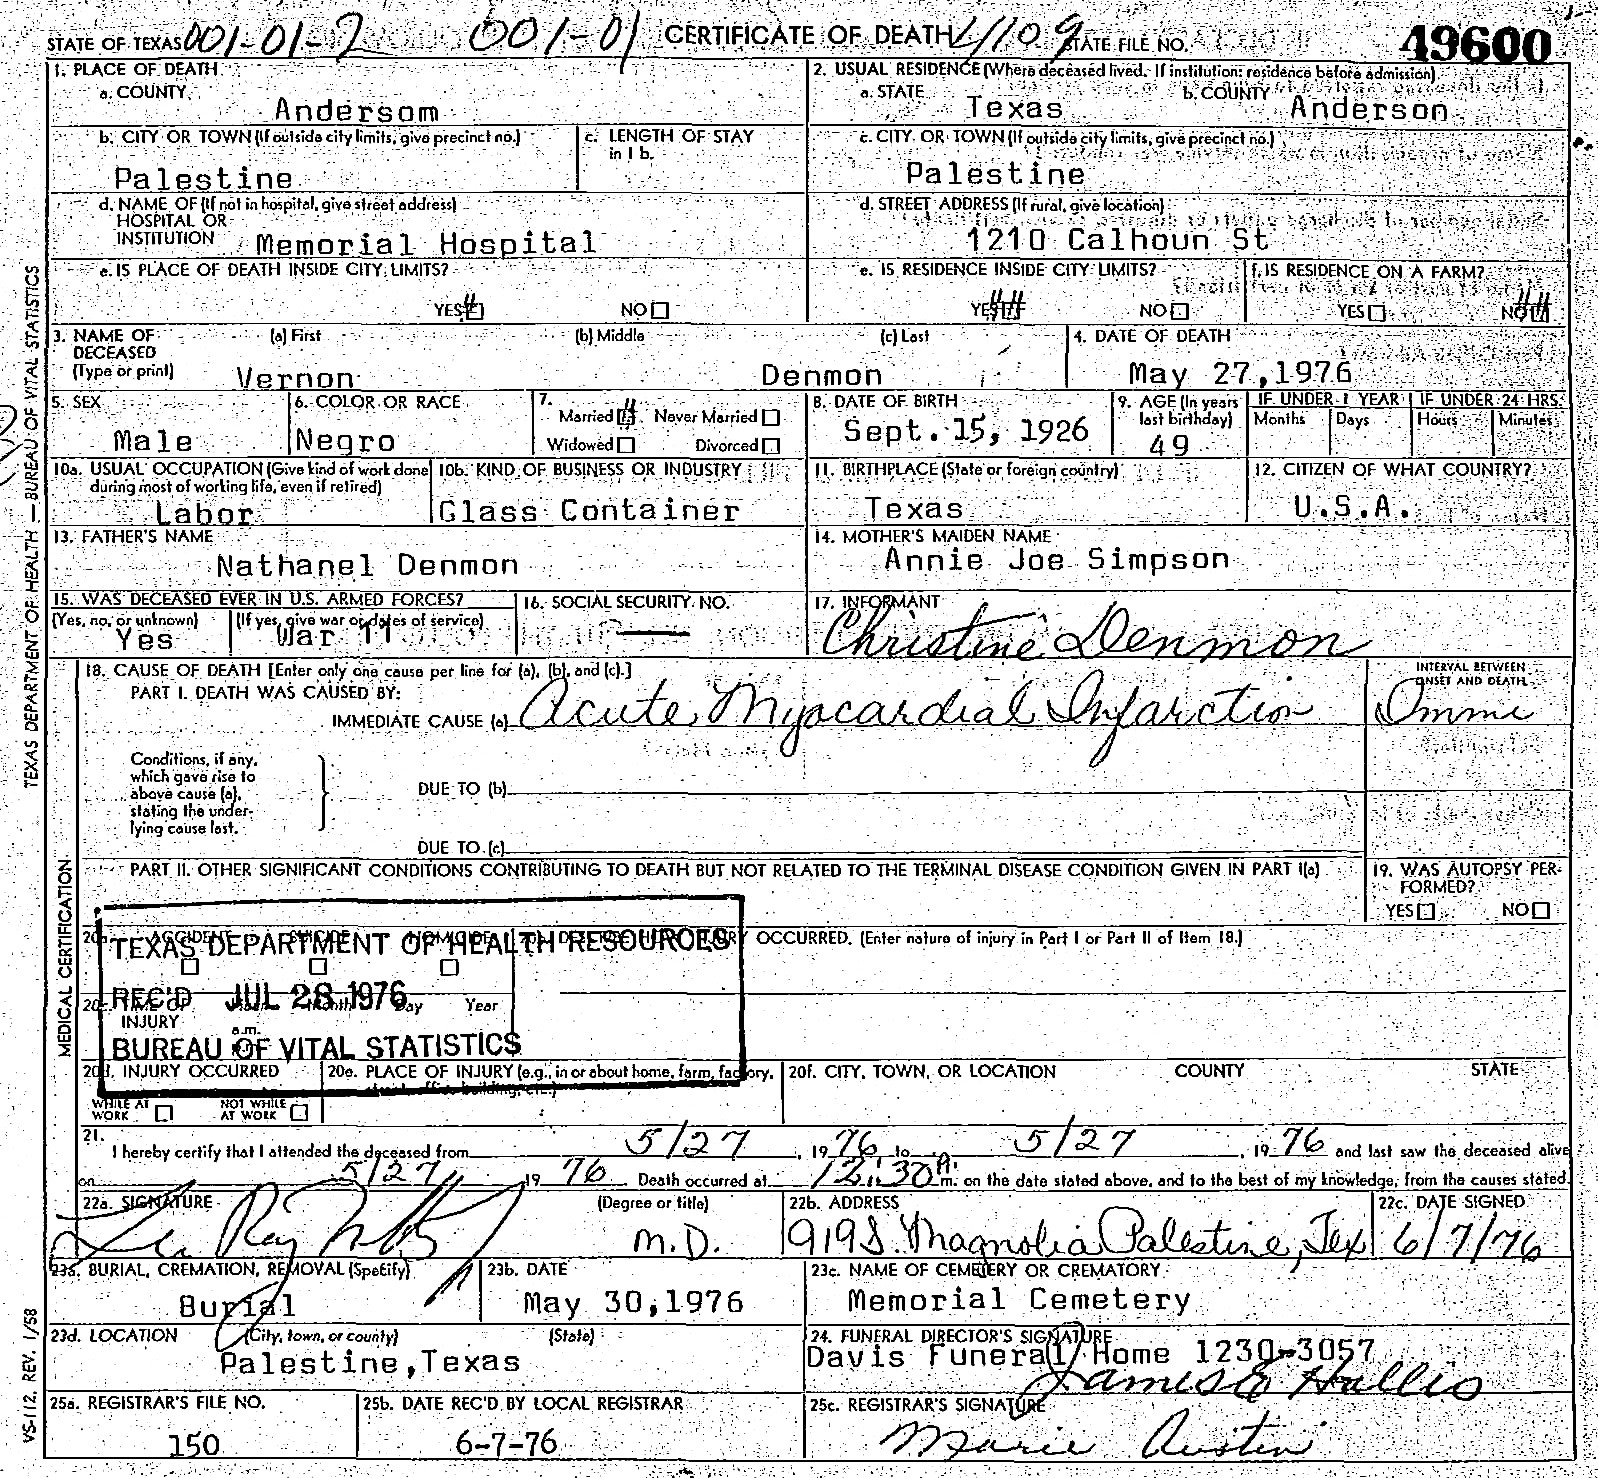 STATE OF TEXAS 001-01-2 001-01 CERTIFICATE OF DEATH 4109 STATE FILE NO. 49600
1. PLACE OF DEATH
a. COUNTY
Andersom
2. USUAL RESIDENCE (Where deceased lived. If institution: residence before admission)
a. STATE Texas b. COUNTY Anderson
b. CITY OR TOWN (If outside city limits, give precinct no.)
Palestine
c. LENGTH OF STAY
in 1 b.
c. CITY OR TOWN (If outside city limits, give precinct no.)
Palestine
d. NAME OF (If not in hospital, give street address)
HOSPITAL OR
INSTITUTION Memorial Hospital
d. STREET ADDRESS (If rural, give location)
1210 Calhoun St
e. IS PLACE OF DEATH INSIDE CITY LIMITS?
YES NO
e. IS RESIDENCE INSIDE CITY LIMITS?
YES NO
f. IS RESIDENCE ON A FARM?
YES NO
3. NAME OF
DECEASED
(Type or print)
(a) First (b) Middle (c) Last
Vernon Denmon
4. DATE OF DEATH
May 27,1976
5. SEX
Male
6. COLOR OR RACE
Negro
7.
Married Never Married
Widowed Divorced
8. DATE OF BIRTH
Sept. 15, 1926
9. AGE (In years
last birthday)
49
IF UNDER 1 YEAR
Months Days
IF UNDER 24 HRS.
Hours Minutes
10a. USUAL OCCUPATION (Give kind of work done
during most of working life, even if retired)
Labor
10b. KIND OF BUSINESS OR INDUSTRY
Glass Container
11. BIRTHPLACE (State or foreign country)
Texas
12. CITIZEN OF WHAT COUNTRY?
U.S.A.
13. FATHER'S NAME
Nathanel Denmon
14. MOTHER'S MAIDEN NAME
Annie Joe Simpson
15. WAS DECEASED EVER IN U.S. ARMED FORCES?
(Yes, no, or unknown) (If yes, give war or dates of service)
Yes War 11
16. SOCIAL SECURITY NO.
17. INFORMANT
Christine Denmon
18. CAUSE OF DEATH [Enter only one cause per line for (a), (b), and (c).]
PART I. DEATH WAS CAUSED BY:
IMMEDIATE CAUSE (a) Acute Myocardial Infarction
INTERVAL BETWEEN
ONSET AND DEATH
Conditions, if any,
which gave rise to
above cause (a),
stating the under-
lying cause last.
DUE TO (b)
DUE TO (c)
PART II. OTHER SIGNIFICANT CONDITIONS CONTRIBUTING TO DEATH BUT NOT RELATED TO THE TERMINAL DISEASE CONDITION GIVEN IN PART I(a)
19. WAS AUTOPSY PER-
FORMED?
YES NO
ACCIDENT SUICIDE HOMICIDE OCCURRED. (Enter nature of injury in Part I or Part II of Item 18.)
TEXAS DEPARTMENT OF HEALTH RESOURCES
REC'D JUL 28 1976
BUREAU OF VITAL STATISTICS
INJURY
a.m.
Day Year
20d. INJURY OCCURRED
WHILE AT
WORK
NOT WHILE
AT WORK
20e. PLACE OF INJURY (e.g., in or about home, farm, factory,
street, office building, etc.)
20f. CITY, TOWN, OR LOCATION COUNTY STATE
21.
I hereby certify that I attended the deceased from 5/27, 1976 to 5/27, 1976 and last saw the deceased alive
on 5/27 1976 Death occurred at 12:30 P. m. on the date stated above, and to the best of my knowledge, from the causes stated.
22a. SIGNATURE (Degree or title)
M.D.
22b. ADDRESS
919 S. Magnolia Palestine, Tex
22c. DATE SIGNED
6/7/76
23a. BURIAL, CREMATION, REMOVAL (Specify)
Burial
23b. DATE
May 30,1976
23c. NAME OF CEMETERY OR CREMATORY
Memorial Cemetery
23d. LOCATION (City, town, or county) (State)
Palestine,Texas
24. FUNERAL DIRECTOR'S SIGNATURE
Davis Funeral Home 1230-3057
James E Hallis
25a. REGISTRAR'S FILE NO.
150
25b. DATE REC'D BY LOCAL REGISTRAR
6-7-76
25c. REGISTRAR'S SIGNATURE
Marie Austin
TEXAS DEPARTMENT OF HEALTH — BUREAU OF VITAL STATISTICS
MEDICAL CERTIFICATION
VS-112. REV. 1/58